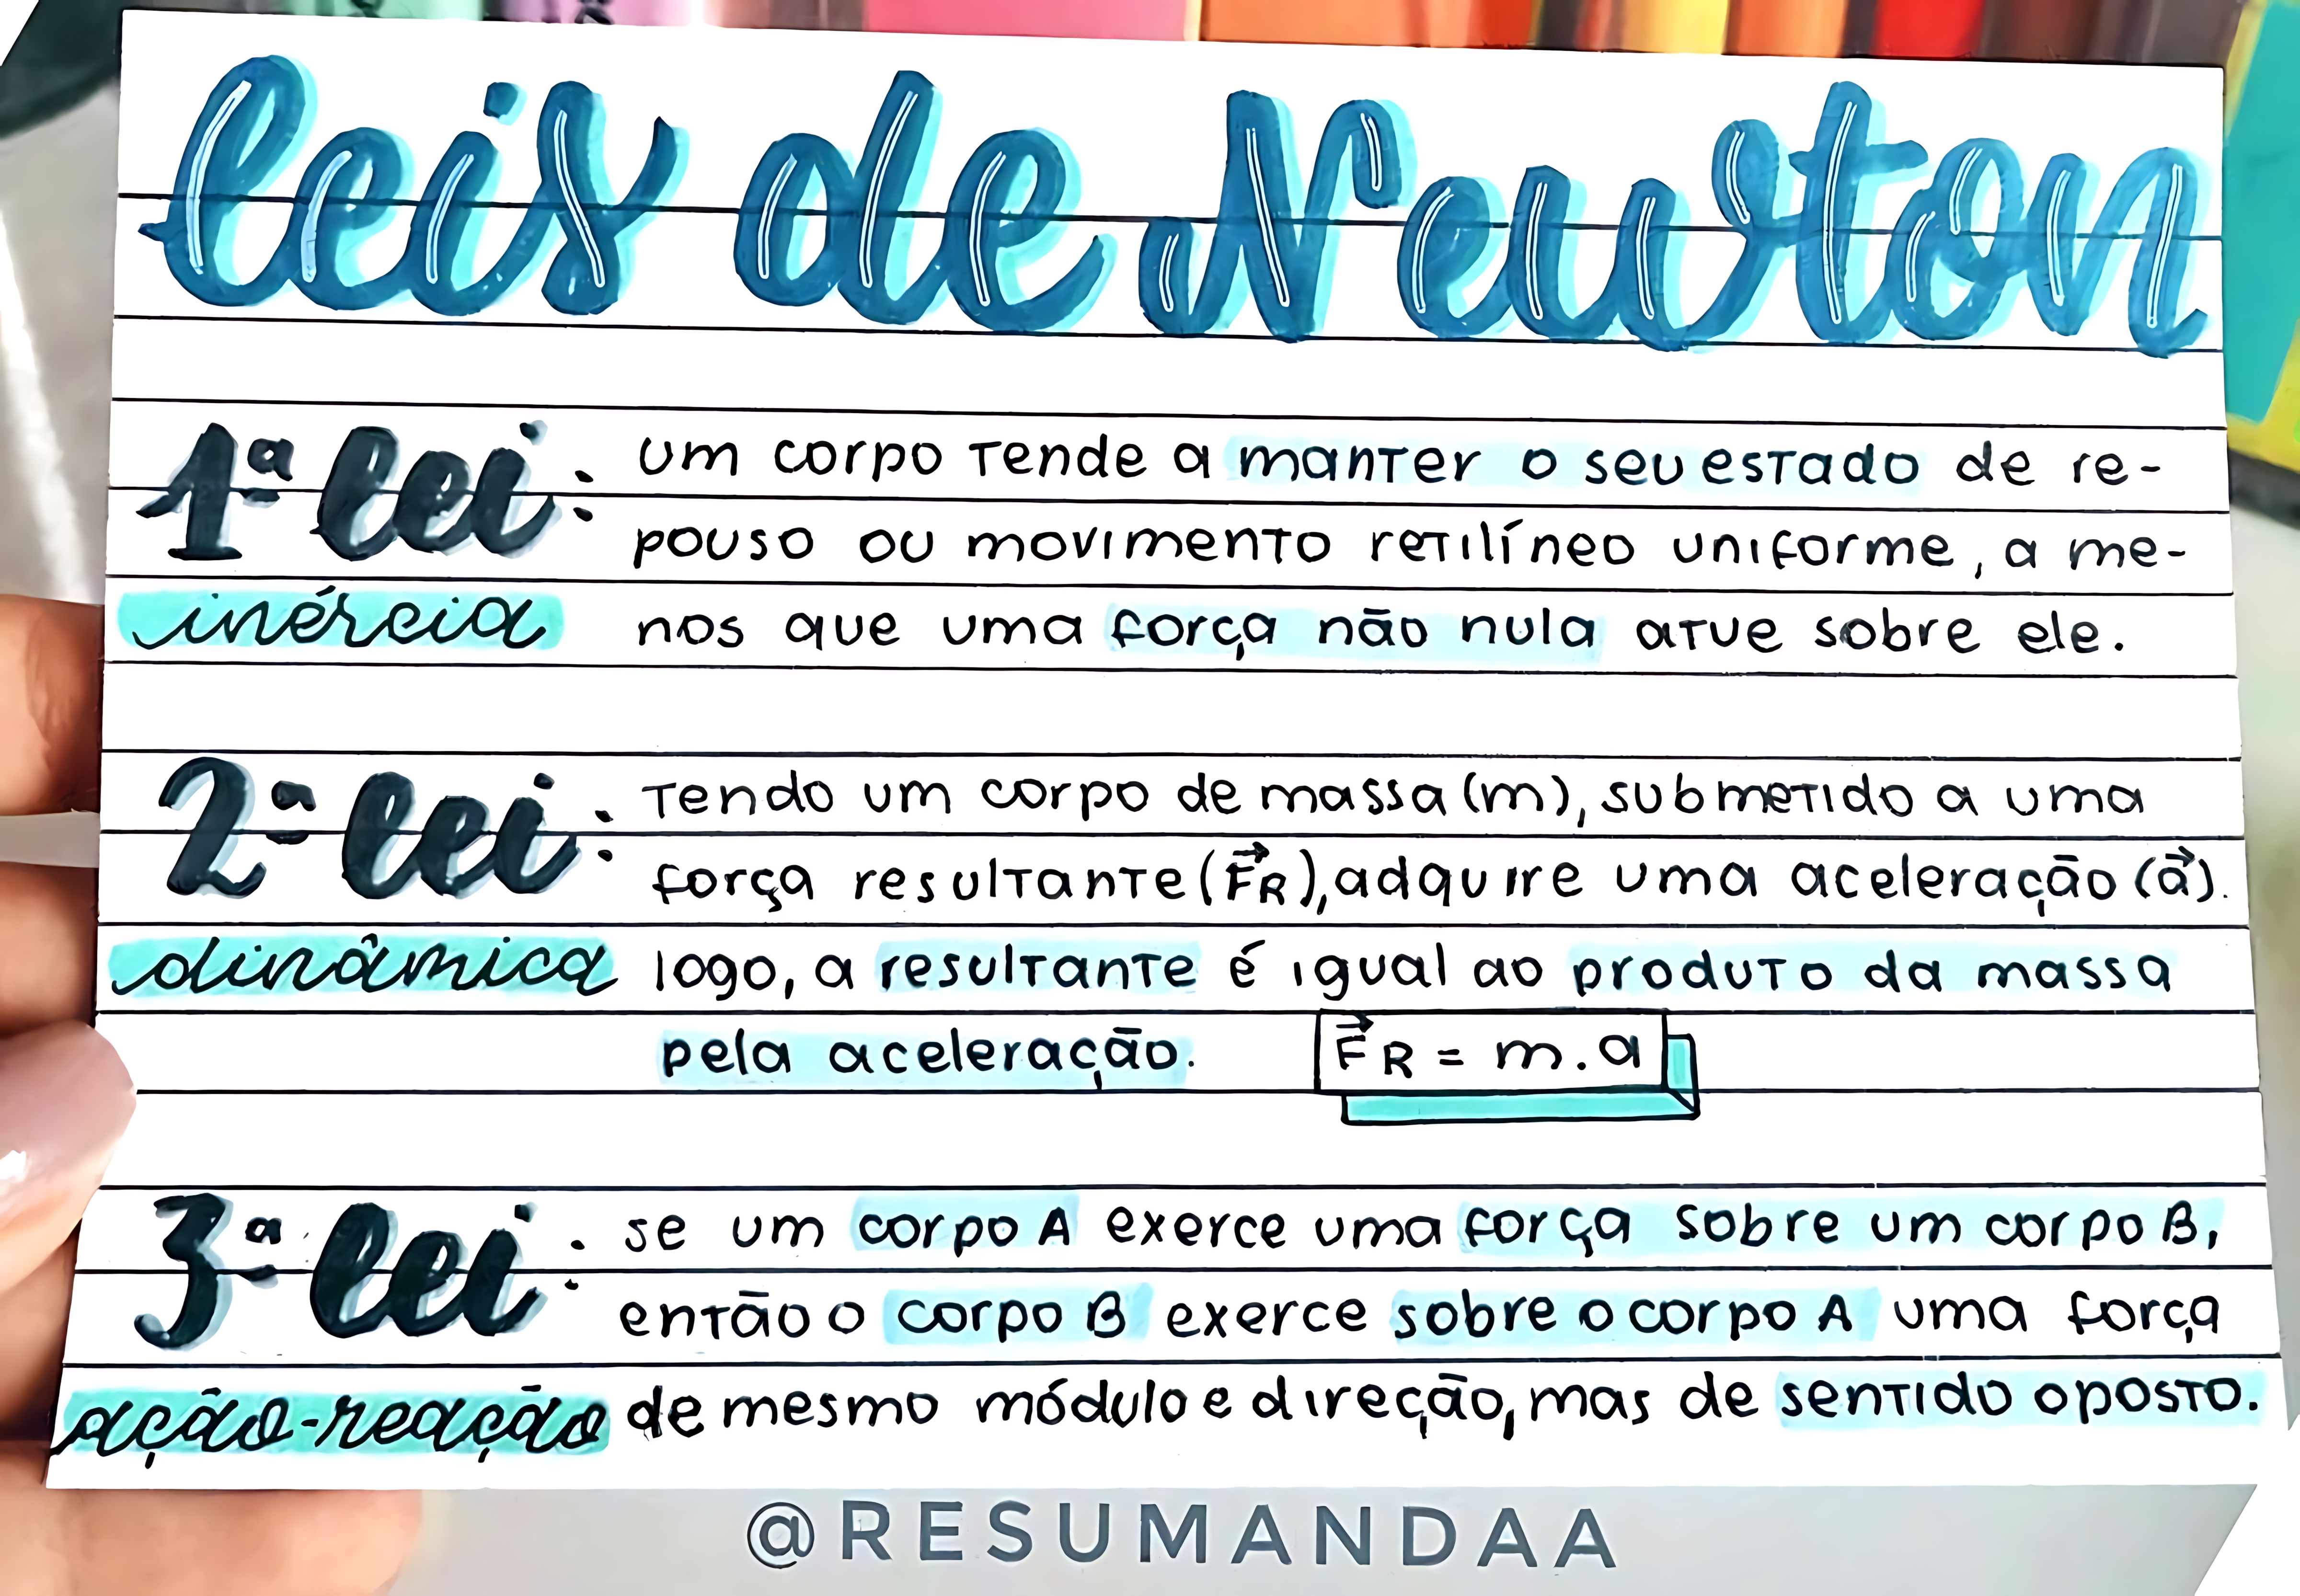 leis de Newton
1ª lei: um corpo tende a manter o seu estado de re-
pouso ou movimento retilíneo uniforme, a me-
inércia nos que uma força não nula atue sobre ele.
2ª lei: tendo um corpo de massa (m), submetido a uma
força resultante (F⃗R), adquire uma aceleração (a⃗).
dinâmica logo, a resultante é igual ao produto da massa
pela aceleração. F⃗R = m.a
3ª lei: se um corpo A exerce uma força sobre um corpo B,
então o corpo B exerce sobre o corpo A uma força
ação-reação de mesmo módulo e direção, mas de sentido oposto.
@RESUMANDAA